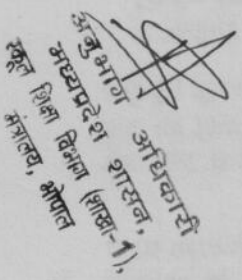 अनुभाग अधिकारी
मध्यप्रदेश शासन,
स्कूल शिक्षा विभाग (शाखा-1),
मंत्रालय, भोपाल